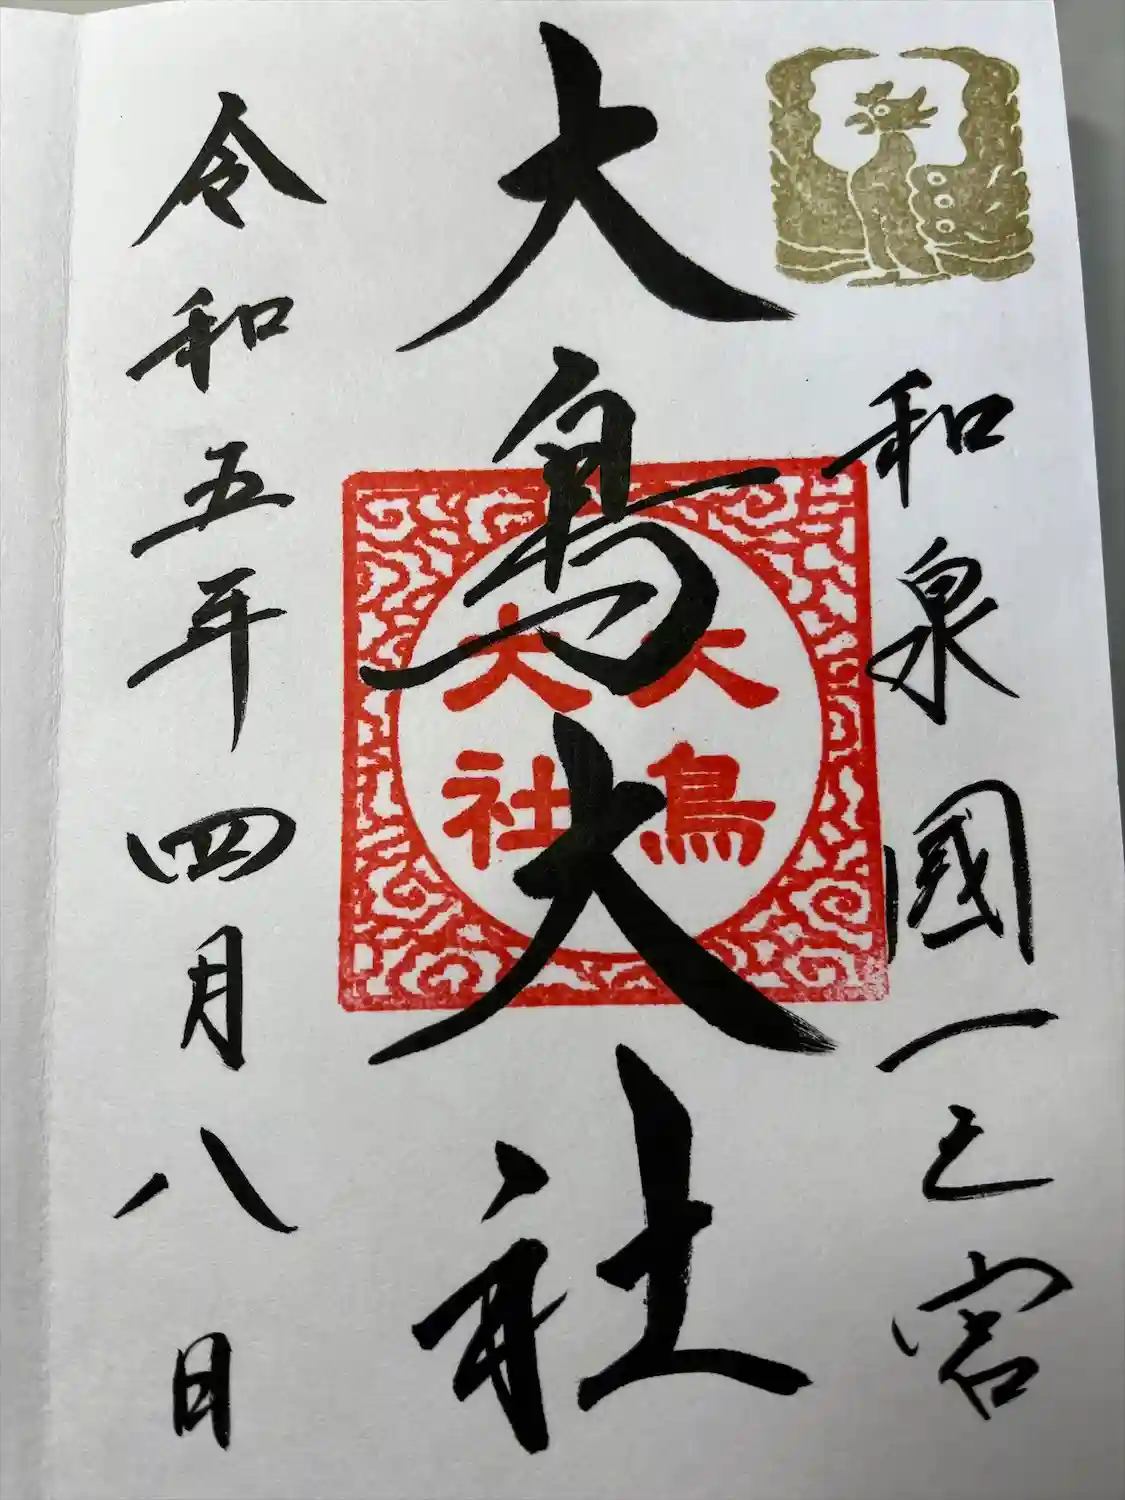 和泉國一之宮
大鳥大社
大鳥
大社
令和五年四月八日